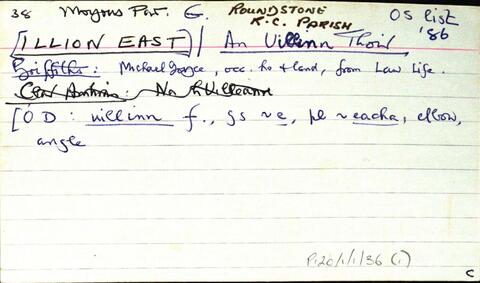 38 Moyrus Par. G. ROUNDSTONE R.C. PARISH OS list '86
[ILLION EAST] / An Uillinn Thoir
Griffiths: Michael Joyce, occ. ho + land, from Law Life.
Na hUilleann
[Ó D: uillinn f., gs ~e, pl ~eacha, elbow,
angle
P120/1/1/36 (1)
C